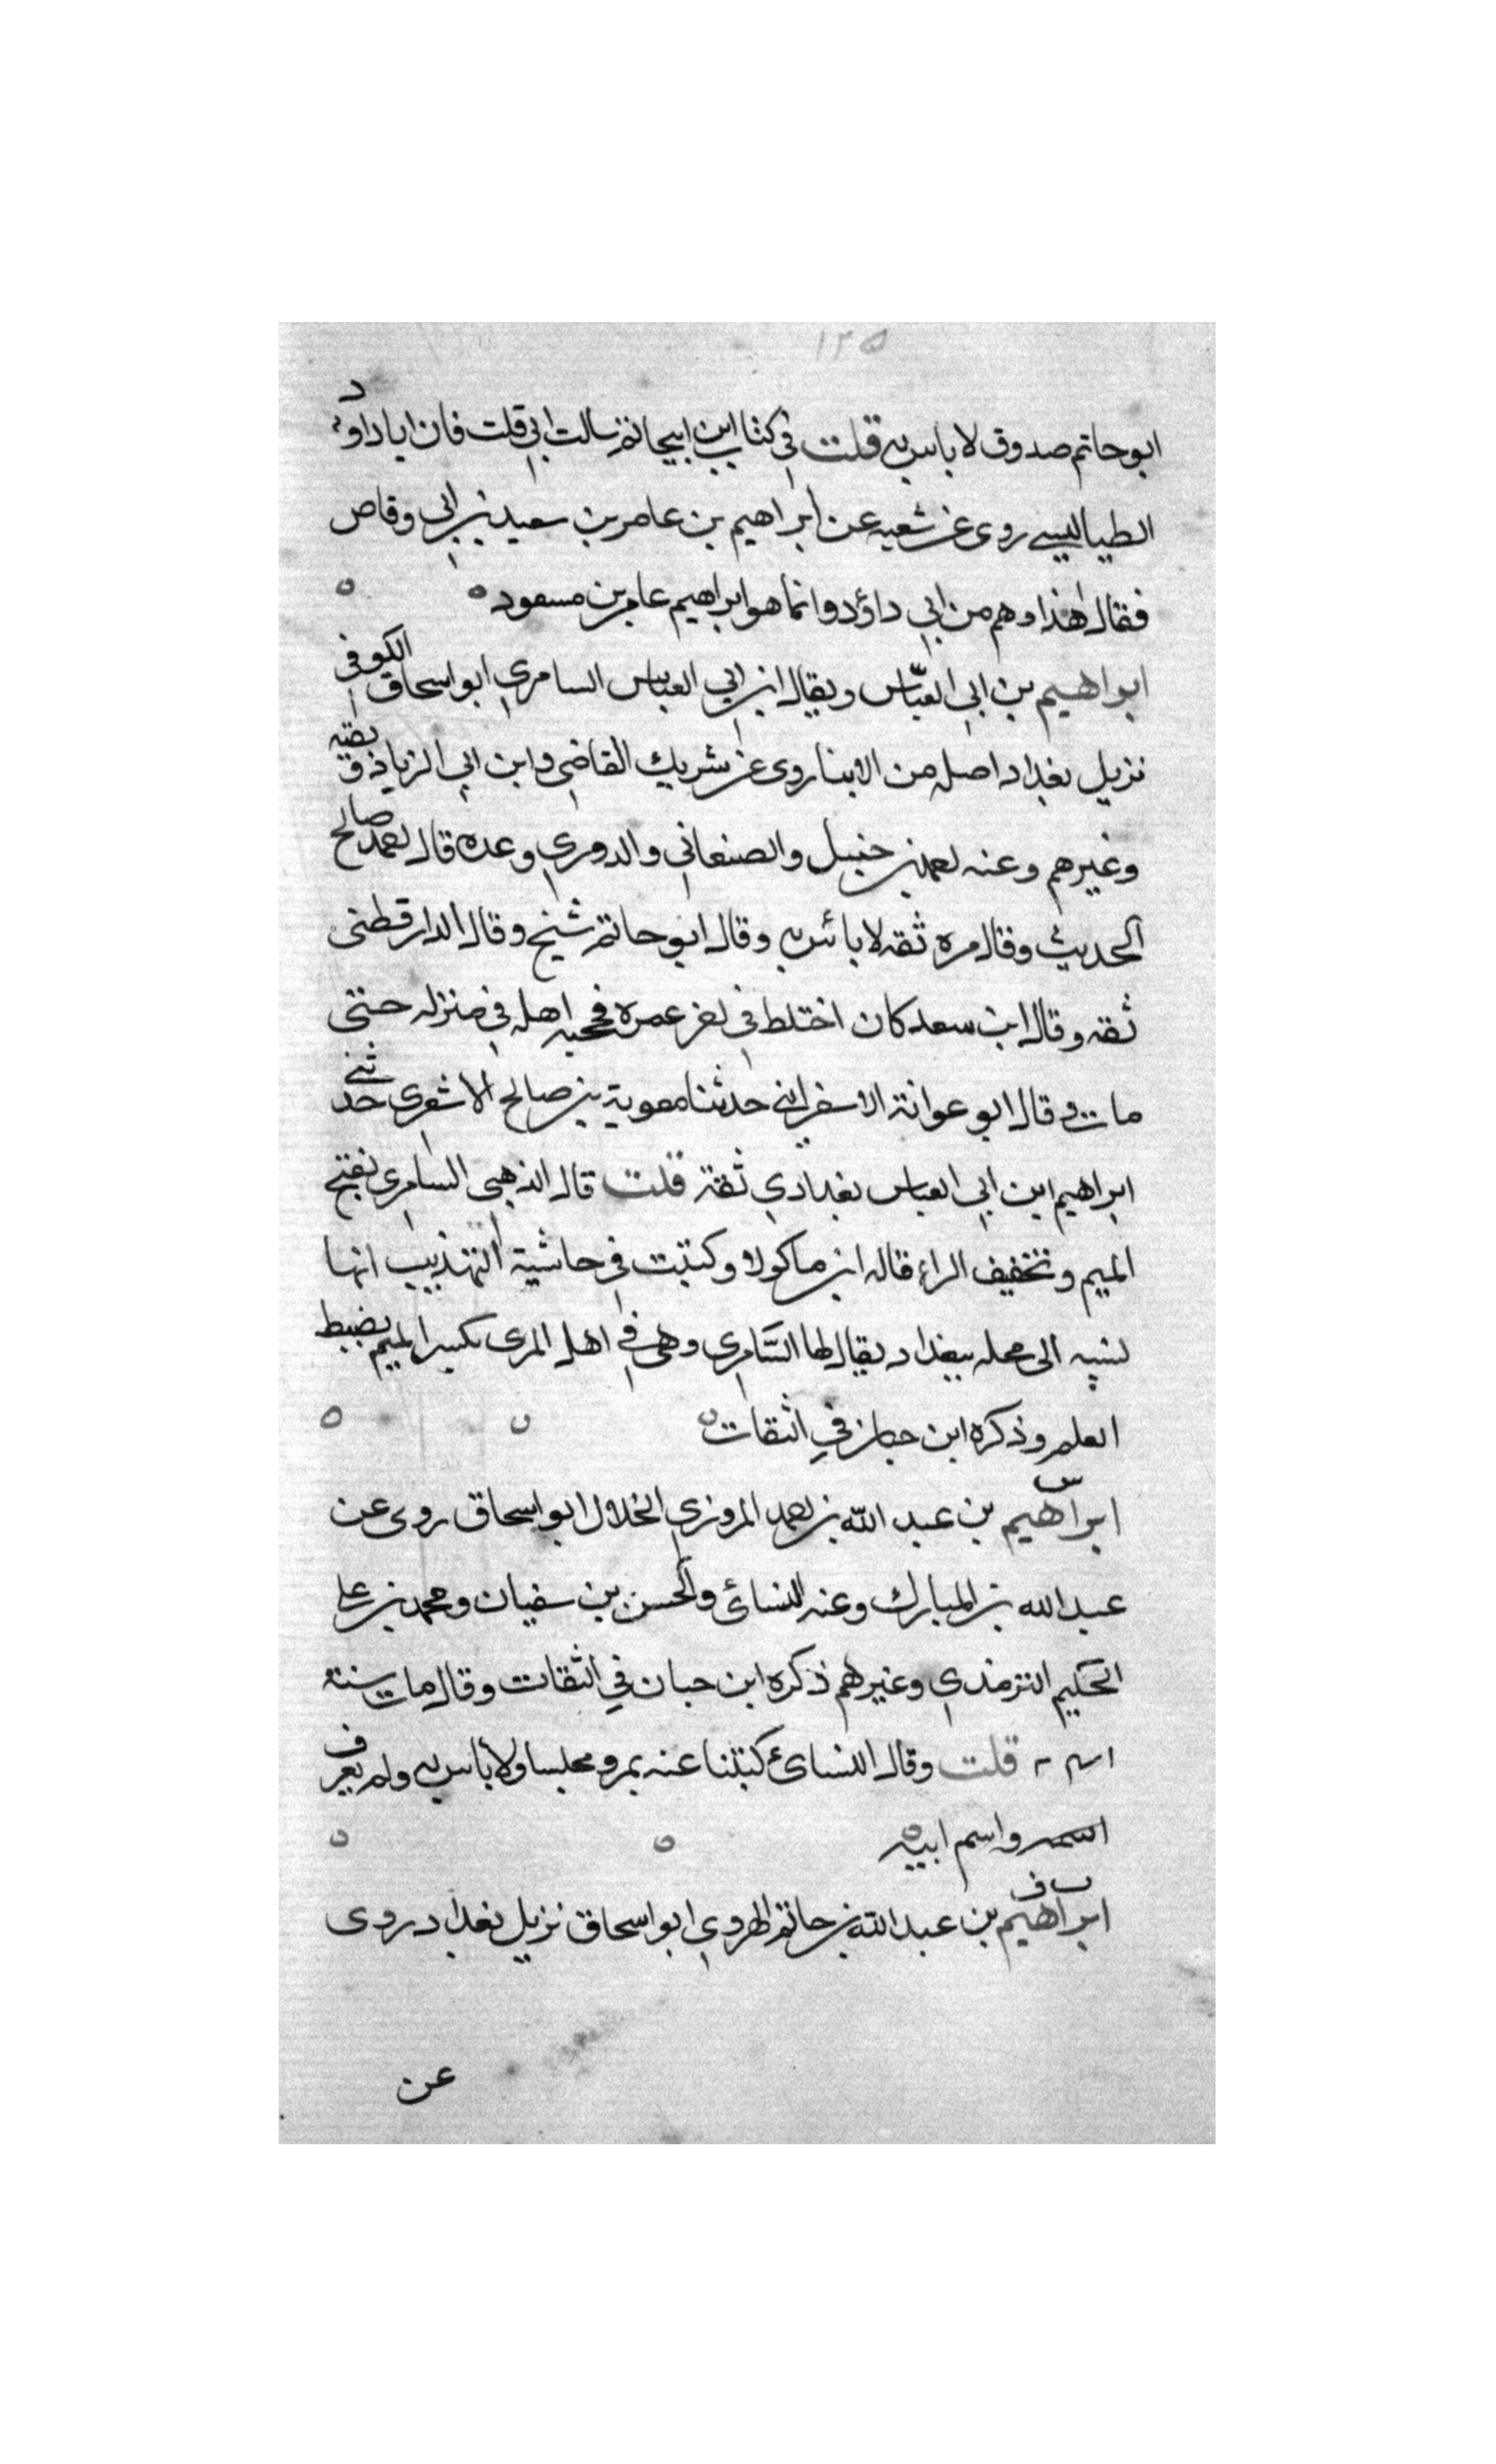 ١٢٥
ابو حاتم صدوق لا باس به قلت في كتاب ابن ابيحاتم سالت ابي قلت فان اباداود
الطيالسي روى عن شعبه عن ابراهيم بن عامر بن سعيد بن ابي وقاص
فقال هذا وهم من ابي داؤد وانما هو ابراهيم عامر بن مسعود ه ه
ابراهيم بن ابي العبّاس ويقال ابن ابي العباس السامري ابو اسحاق الكوفي
نزيل بغداد اصله من الابنا روى عن شريك القاضي وابن ابي الزناد وبقيه
وغيرهم وعنه احمد بن حنبل والصنعاني والدوري وعده قال احمد صالح
الحديث وقال مره ثقه لا بائس به وقال ابو حاتم شيخ وقال الدارقطني
ثقه وقال ابن سعد كان اختلط في اخر عمره فحجبه اهله في منزله حتى
مات وقال ابو عوانة الاسفرايني حدثنا معوية بن صالح الاشعري حدثني
ابراهيم ابن ابي العباس بغدادي ثقة قلت قال الذهبي السامري بفتح
الميم وتخفيف الراء قاله ابن ماكولا وكتبت في حاشية التهذيب انها
نسبه الى محله ببغداد يقال لها السَّامري وهي في اهل المرى بكسر الميم بضبط
العلم وذكره ابن حبان في الثقات ه ه ه
س
ابراهيم بن عبد الله بن احمد المروزي الخلال ابو اسحاق روى عن
عبد الله بن المبارك وعنه النسائي والحسن بن سفيان ومحمد بن علي
الحكيم الترمذي وغيرهم ذكره ابن حبان في الثقات وقال مات سنة
قلت وقال النسائي كتبنا عنه بمرو مجلسا ولا بأس به ولم يعرف
اسمه واسم ابيه ه ه ه
ت ق
ابراهيم بن عبد الله بن حاتم الهروي ابو اسحاق نزيل بغداد روى
عن